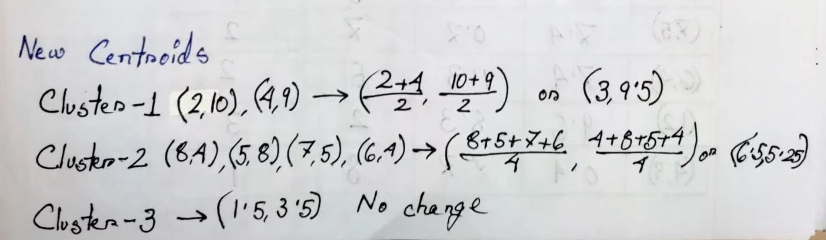 New Centroids
Cluster-1 (2,10), (4,9) → (2+4/2, 10+9/2) or (3,9.5)
Cluster-2 (8,4), (5,8), (7,5), (6,4) → (8+5+7+6/4, 4+8+5+4/4) or (6.5,5.25)
Cluster-3 → (1.5, 3.5) No change